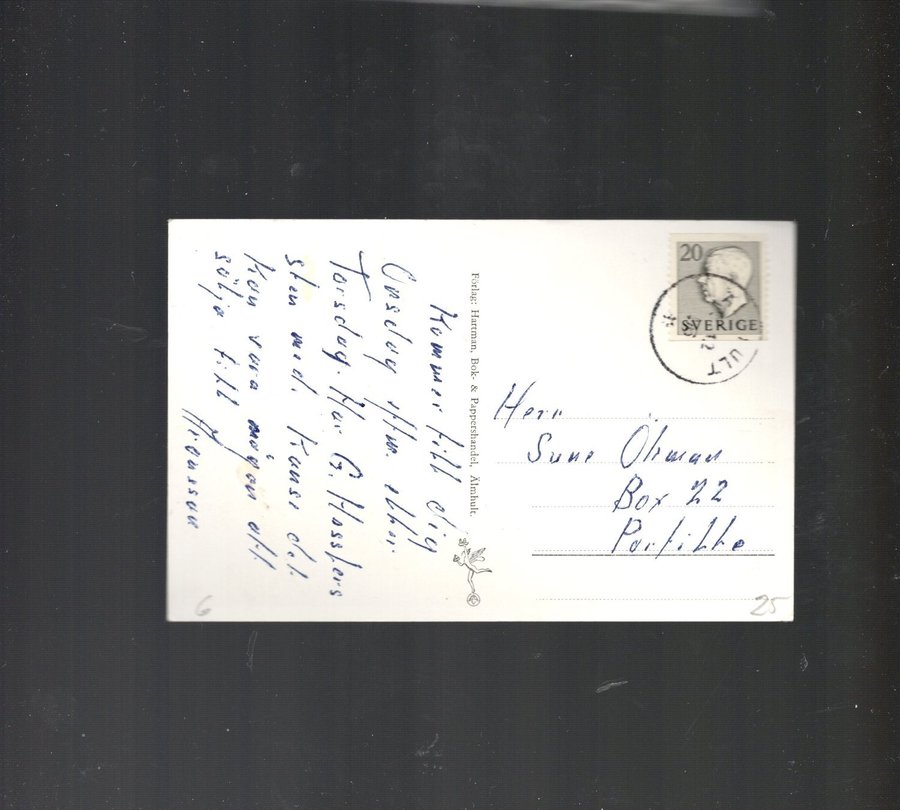 Kommer till dig
Onsdag eftm. eller
Torsdag. Har G. Hasslers
sten med. Kanse det
Kan vara någon att
sälja till
Aronsson
Förlag: Hartman, Bok- & Pappershandel, Älmhult.
20
SVERIGE
ULT
Herr
Sune Öhman
Box 22
Partille
6
25